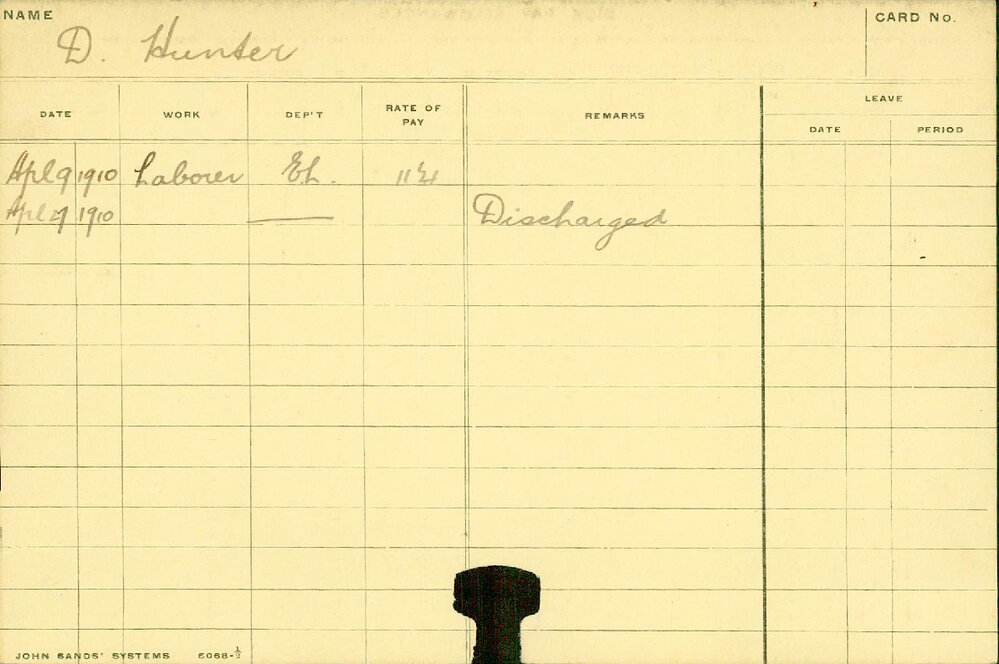 NAME
D. Hunter
CARD No.
DATE WORK DEP'T RATE OF PAY REMARKS LEAVE
DATE PERIOD
Apl 9 1910 Laborer Eh.
Apl 27 1910 Discharged
JOHN SANDS' SYSTEMS